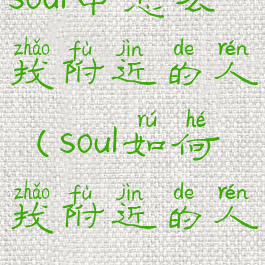 soul中怎么
zhǎo fù jìn de rén
找附近的人
rú hé
(soul如何
zhǎo fù jìn de rén
找附近的人